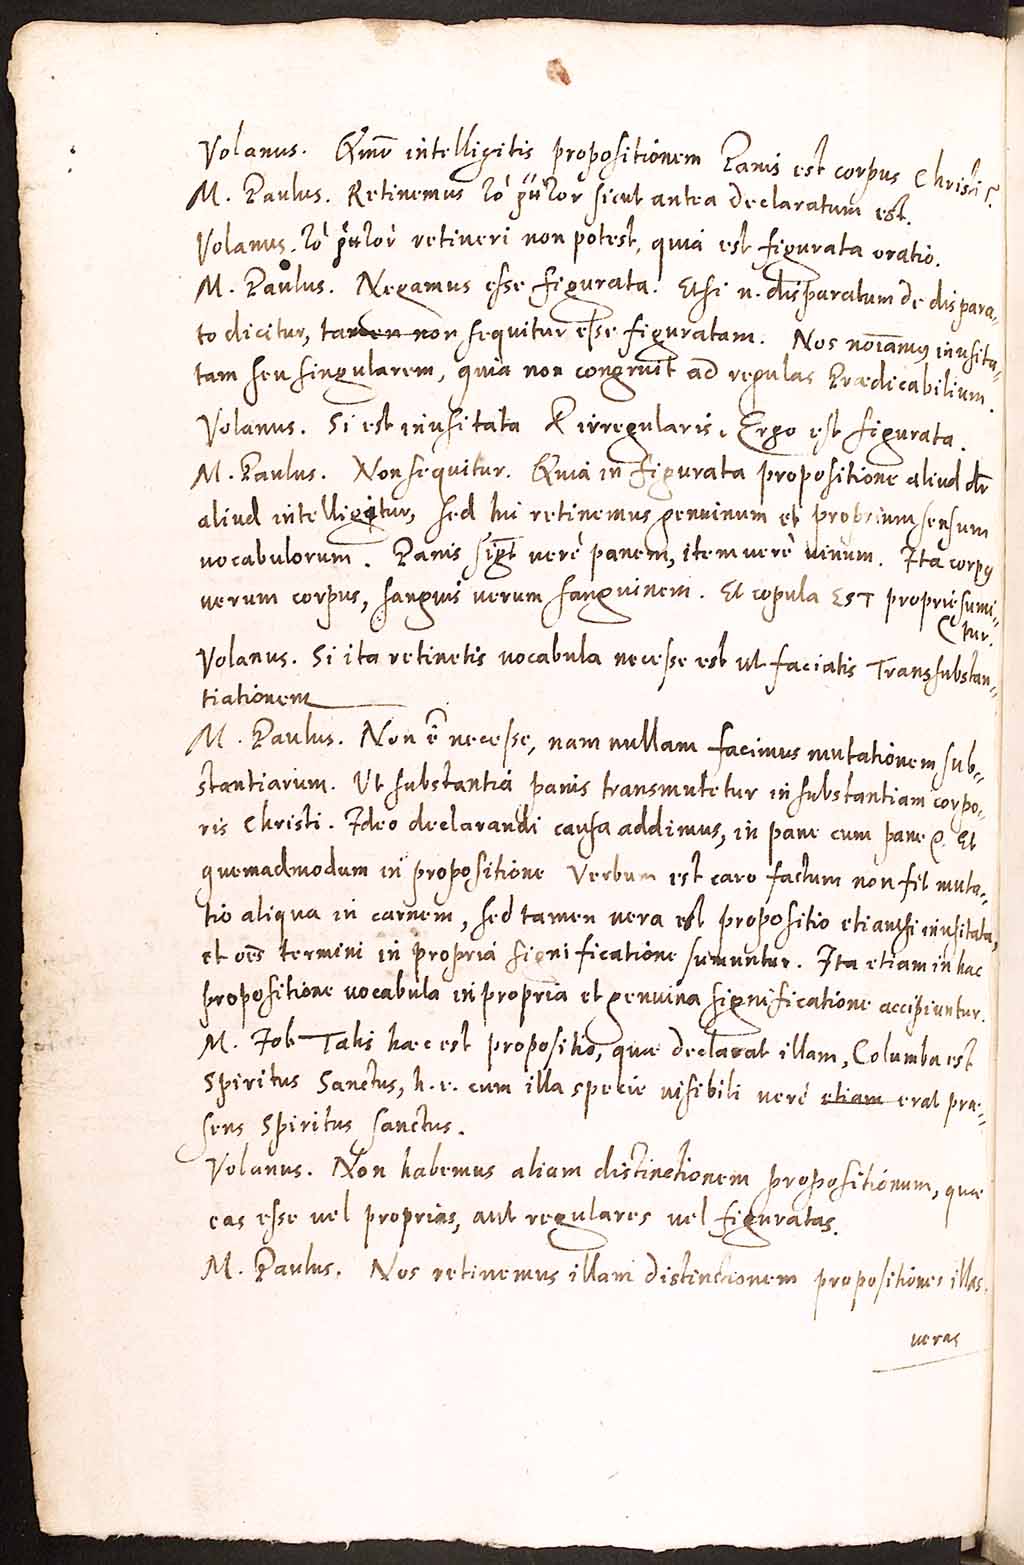 Volanus. Quō intelligitis propositionem Panis est corpus Christi?
M. Paulus. Retinemus τὸ ῥητὸν sicut antea declaratum est.
Volanus. τὸ ῥητὸν retineri non potest, quia est figurata oratio.
M. Paulus. Negamus esse figurata. Etsi n. disparatum de dispara-
to dicitur, tamen non sequitur esse figuratam. Nos noīamus inusita-
tam seu singularem, quia non congruit ad regulas Prædicabilium.
Volanus. Si est inusitata & irregularis, Ergo est figurata.
M. Paulus. Non sequitur. Quia in figurata propositione aliud dr̄
aliud intelligitur, sed hic retinemus genuinum et proprium sensum
vocabulorum. Panis sigt verè panem, item verè vinum. Ita corpus
verum corpus, sanguis verum sanguinem. Et copula EST propriè sumi-
tur.
Volanus. Si ita retinetis vocabula necesse est ut faciatis Transsubstan-
tiationem
M. Paulus. Non ē necesse, nam nullam facimus mutationem sub-
stantiarum. Ut substantia panis transmutetur in substantiam corpo-
ris Christi. Ideo declarandi causa addimus, in pane cum pane &. Et
quemadmodum in propositione Verbum est caro factum non fit muta-
tio aliqua in carnem, sed tamen vera est propositio etiamsi inusitata,
et oēs termini in propria significatione sumuntur. Ita etiam in hac
propositione vocabula in propria et genuina significatione accipiuntur.
M. Job Talis hæc est propositio, quæ declarat illam, Columba est
Spiritus Sanctus, h. e. cum illa specie visibili verè etiam erat præ-
sens Spiritus sanctus.
Volanus. Non habemus aliam distinctionem propositionum, quæ
eas esse vel proprias, aut regulares vel figuratas.
M. Paulus. Nos retinemus illam distinctionem propositiones illas
veras